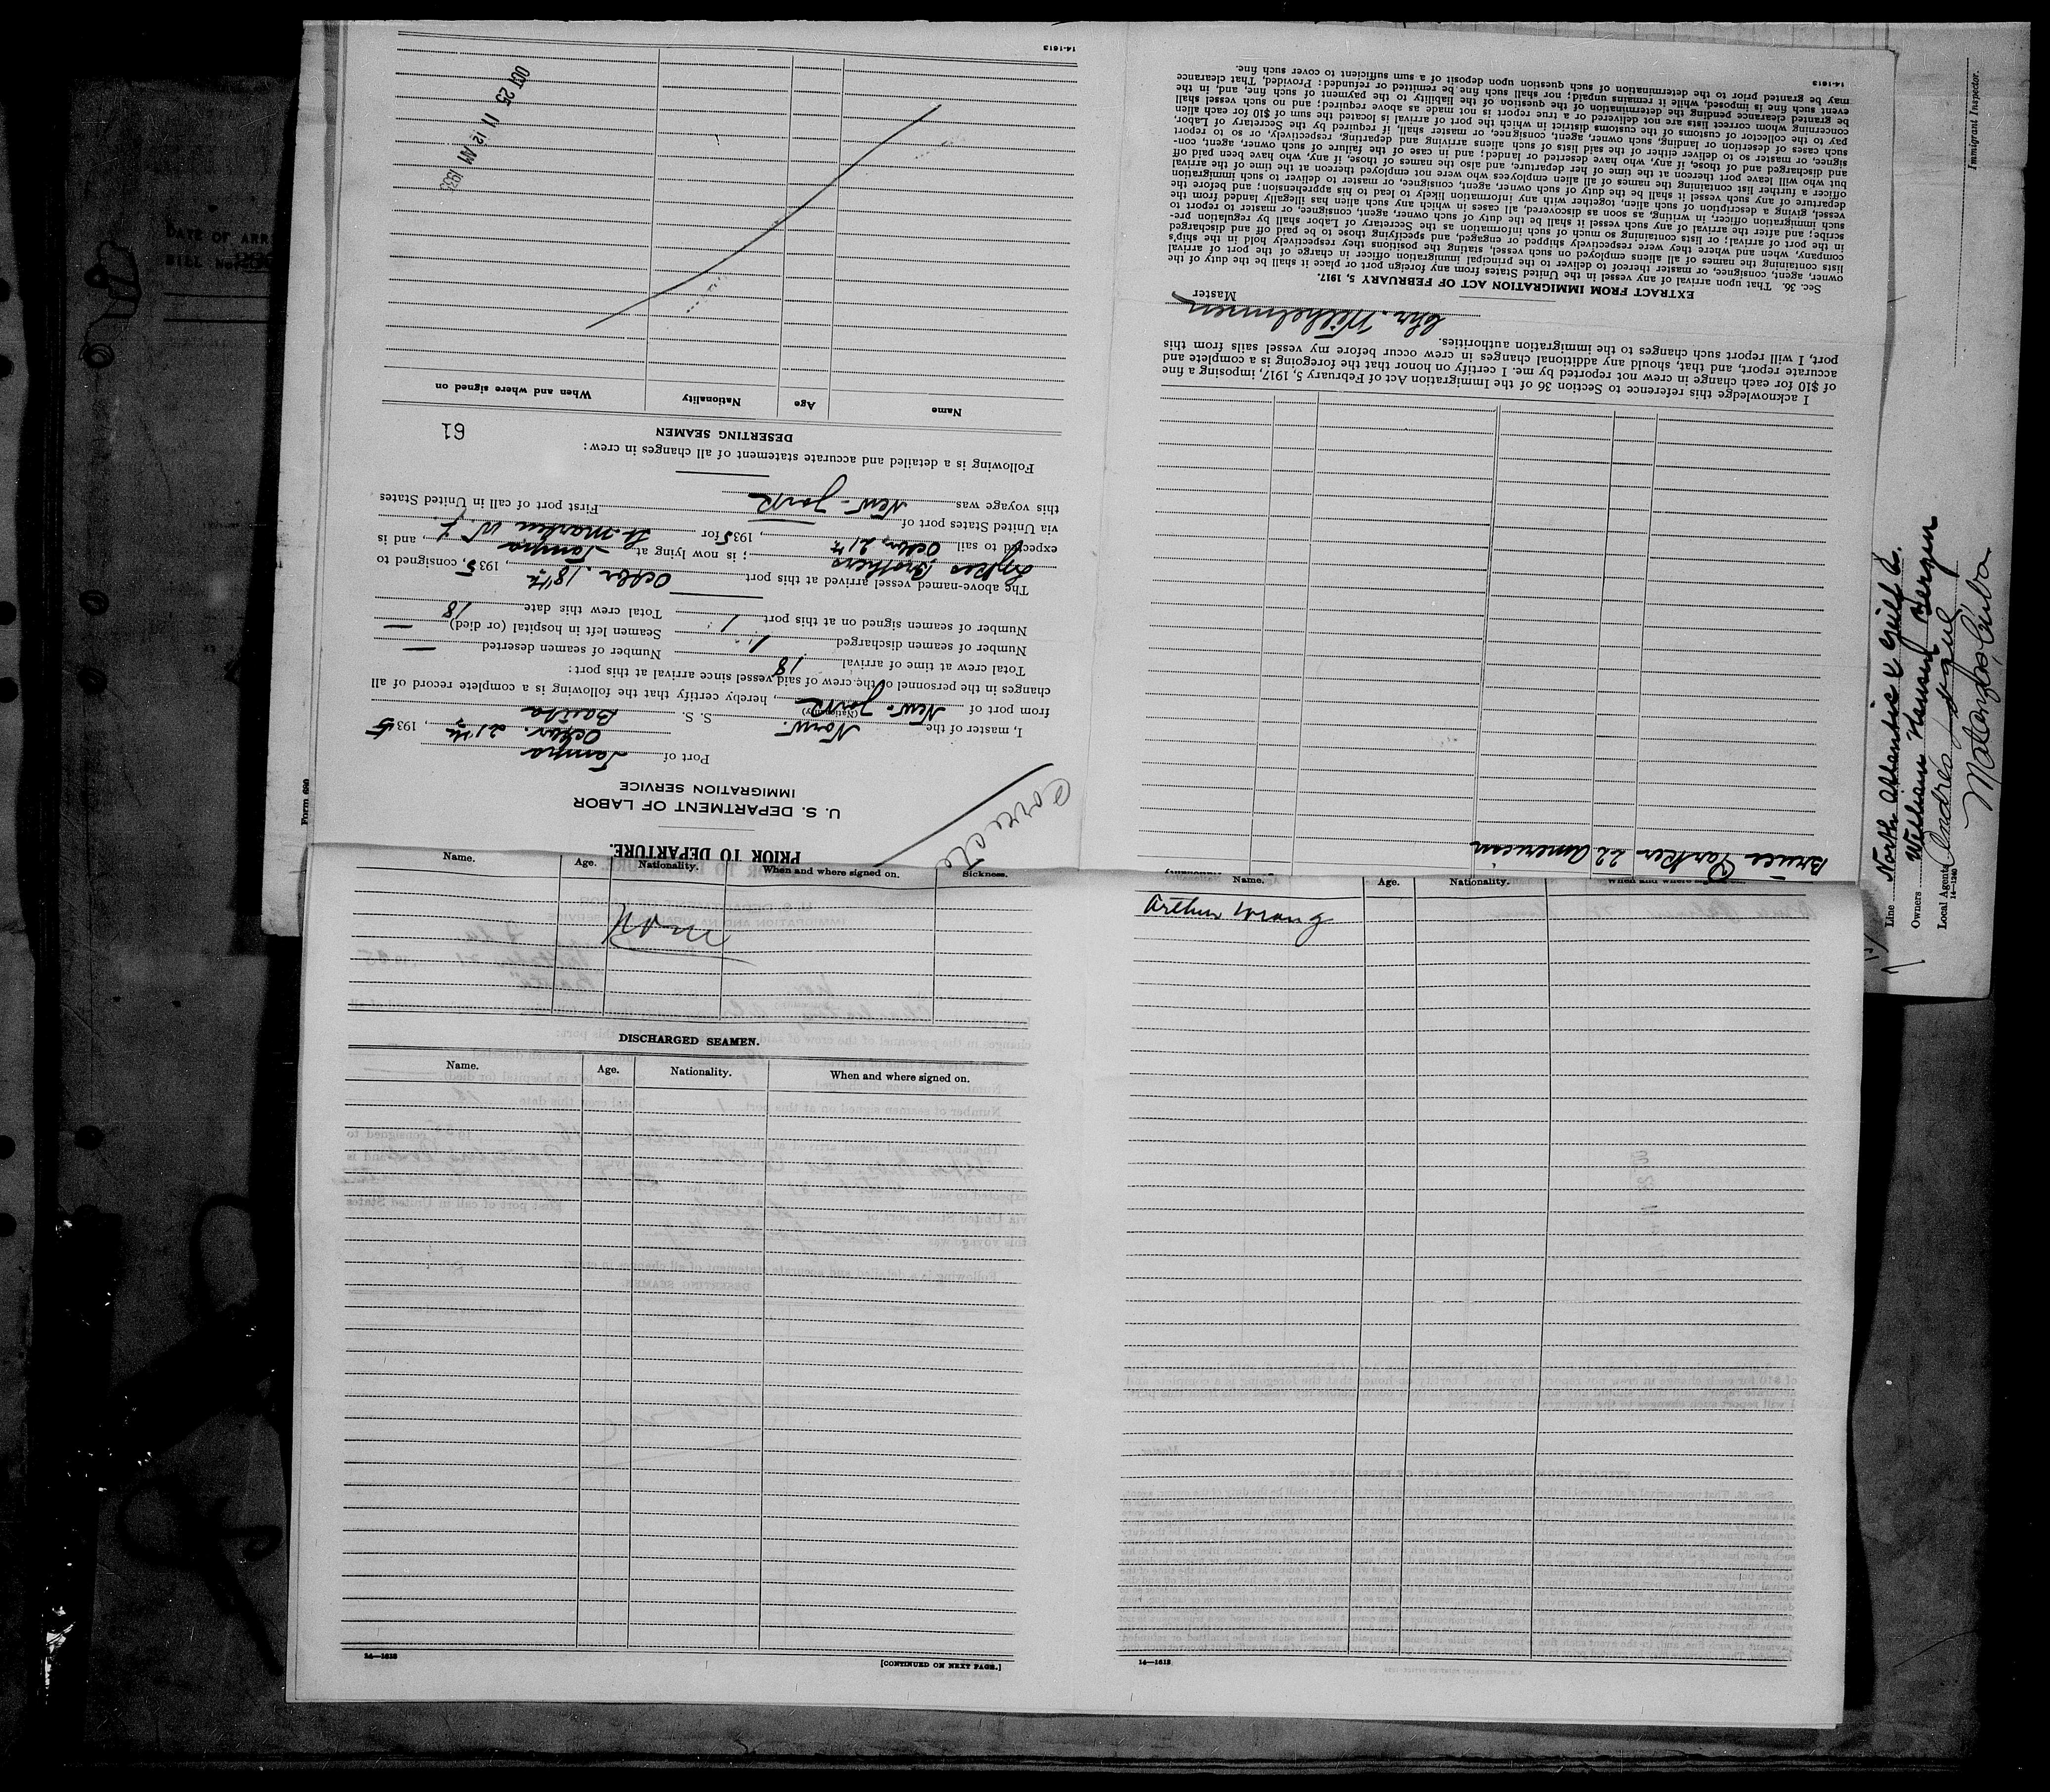 PRIOR TO DEPARTURE.
U. S. DEPARTMENT OF LABOR
IMMIGRATION SERVICE
Form 690
Port of Tampa
Octbr. 21st, 1935
I, master of the Norw. S. S. Bautra
(Nationality)
from port of New-York, hereby certify that the following is a complete record of all
changes in the personnel of the crew of said vessel since arrival at this port:
Total crew at time of arrival 18 Number of seamen deserted —
Number of seamen discharged 1 Seamen left in hospital (or died) —
Number of seamen signed on at this port 1 Total crew this date 18
The above-named vessel arrived at this port Octbr. 18th, 1935, consigned to
Lykes Brothers; is now lying at Tampa, and is
expected to sail Octbr. 21st, 1935 for
via United States port of
this voyage was New-York First port of call in United States
Following is a detailed and accurate statement of all changes in crew:
61
DESERTING SEAMEN
Name Age Nationality When and where signed on
OCT 25 11 12 AM 1935
14-1613
Bruce Parker 22 American
I acknowledge this reference to Section 36 of the Immigration Act of February 5, 1917, imposing a fine
of $10 for each change in crew not reported by me. I certify on honor that the foregoing is a complete and
accurate report, and that, should any additional changes in crew occur before my vessel sails from this
port, I will report such changes to the immigration authorities.
Chr. Wilhelmsen
Master
EXTRACT FROM IMMIGRATION ACT OF FEBRUARY 5, 1917.
Sec. 36. That upon arrival of any vessel in the United States from any foreign port or place it shall be the duty of the
owner, agent, consignee, or master thereof to deliver to the principal immigration officer in charge of the port of arrival
lists containing the names of all aliens employed on such vessel, stating the positions they respectively hold in the ship's
company, when and where they were respectively shipped or engaged, and specifying those to be paid off and discharged
in the port of arrival; or lists containing so much of such information as the Secretary of Labor shall by regulation pre-
scribe; and after the arrival of any such vessel it shall be the duty of such owner, agent, consignee, or master to report to
such immigration officer, in writing, as soon as discovered, all cases in which any such alien has illegally landed from the
vessel, giving a description of such alien, together with any information likely to lead to his apprehension; and before the
departure of any such vessel it shall be the duty of such owner, agent, consignee, or master to deliver to such immigration
officer a further list containing the names of all alien employees who were not employed thereon at the time of the arrival
but who will leave port thereon at the time of her departure, and also the names of those, if any, who have been paid off
and discharged and of those, if any, who have deserted or landed; and in case of the failure of such owner, agent, con-
signee, or master so to deliver either of the said lists of such aliens arriving and departing, respectively, or so to report
such cases of desertion or landing, such owner, agent, consignee, or master shall, if required by the Secretary of Labor,
pay to the collector of customs of the customs district in which the port of arrival is located the sum of $10 for each alien
concerning whom correct lists are not delivered or a true report is not made as above required; and no such vessel shall
be granted clearance pending the determination of the question of the liability to the payment of such fine, and, in the
event such fine is imposed, while it remains unpaid; nor shall such fine be remitted or refunded: Provided, That clearance
may be granted prior to the determination of such question upon deposit of a sum sufficient to cover such fine.
14-1613
Immigrant Inspector.
Line North Atlantic & Gulf
Owners William Hansen Bergen
Local Agents Andrés
Matanzas, Cuba
14—1240
DATE OF ARR
Name. Age. Nationality. When and where signed on. Sickness.
DISCHARGED SEAMEN.
Name. Age. Nationality. When and where signed on.
14—1613
[CONTINUED ON NEXT PAGE.]
Name. Age. Nationality. When and where signed on.
Arthur Wrang
14—1613